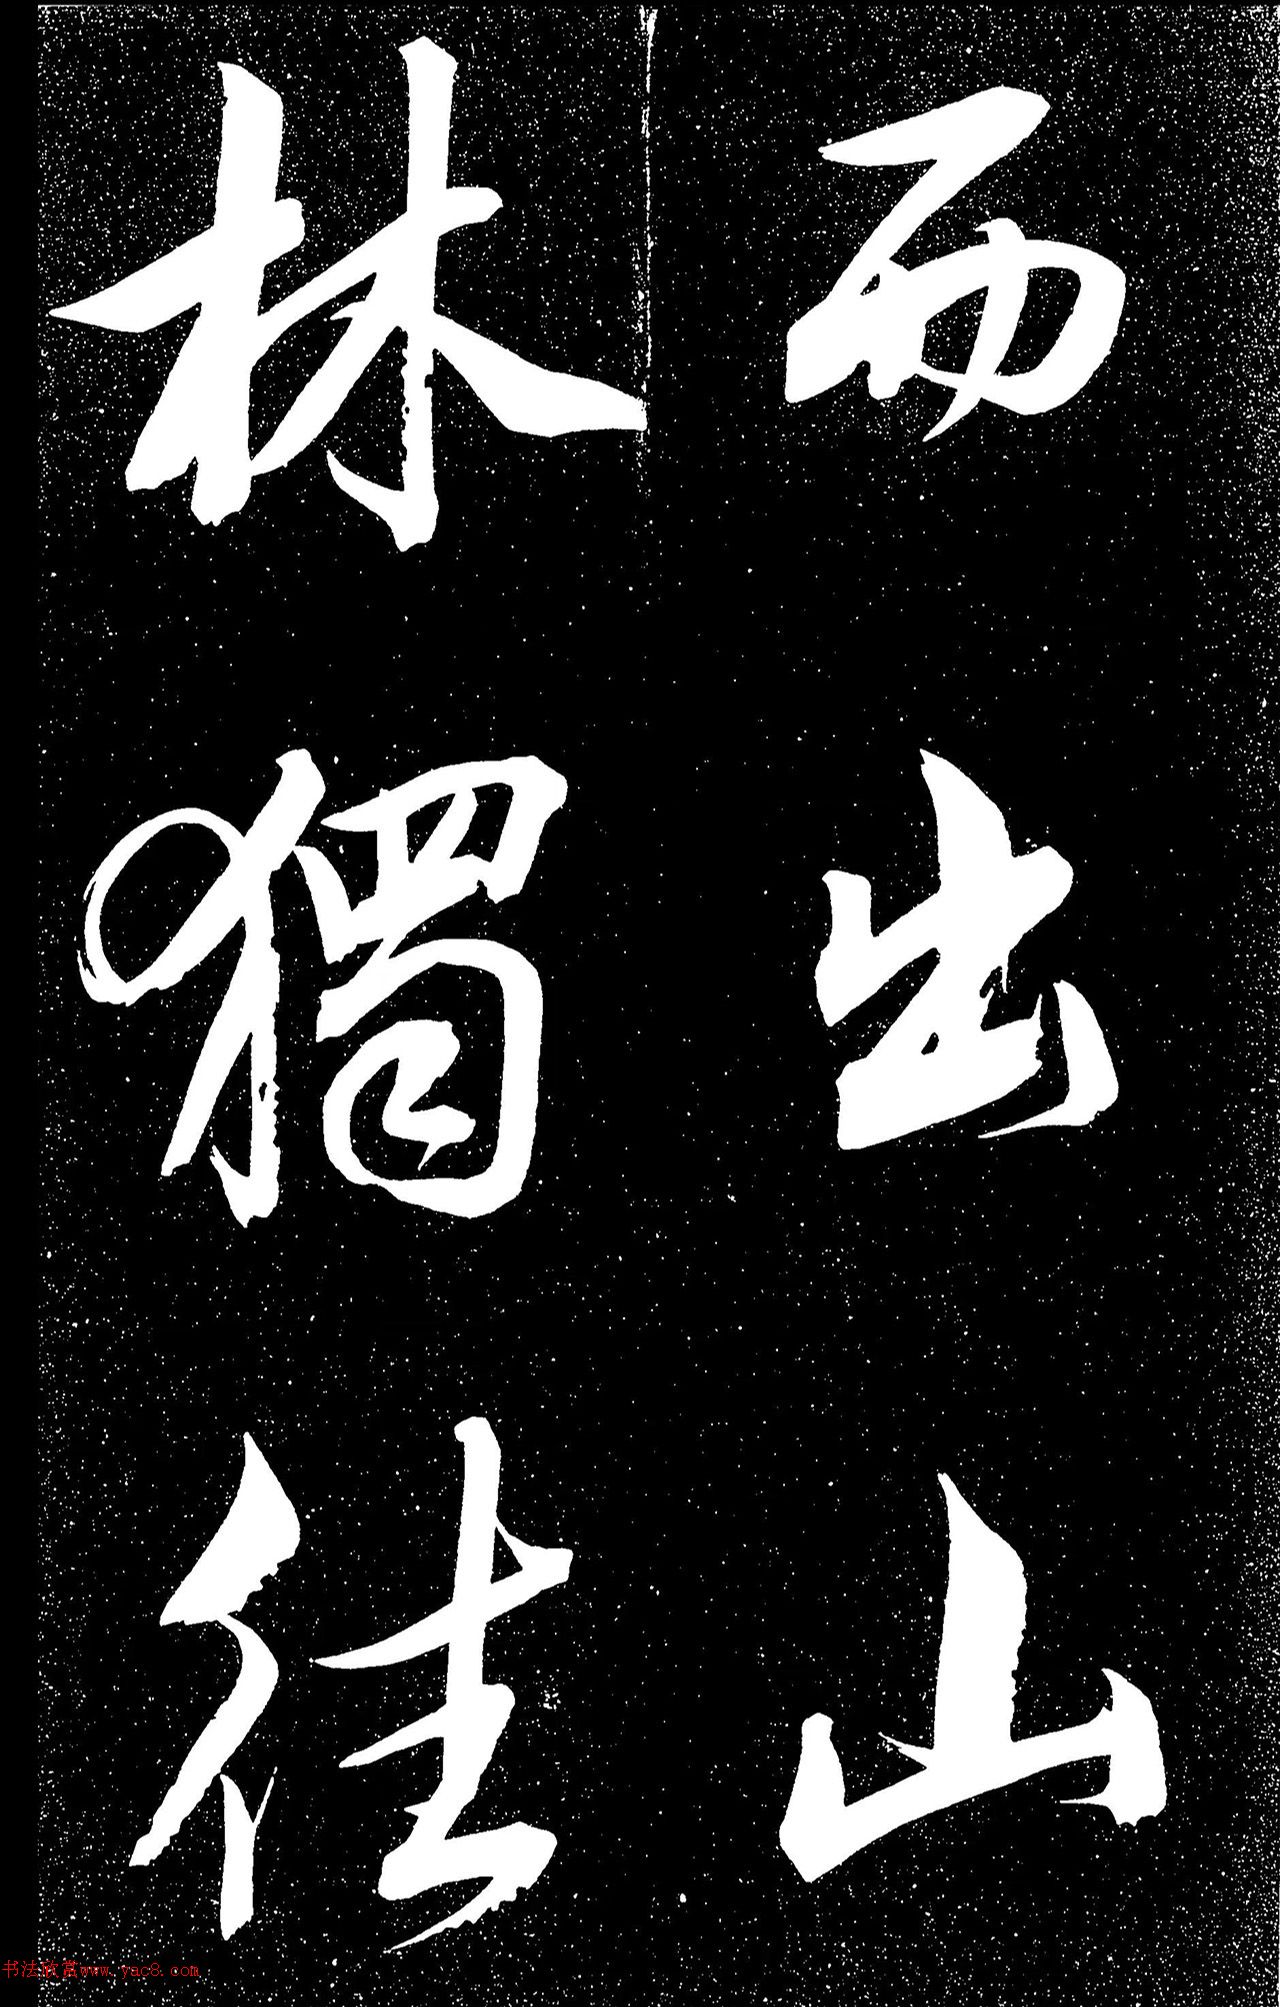 而出山
林獨往
书法欣赏www.yac8.com